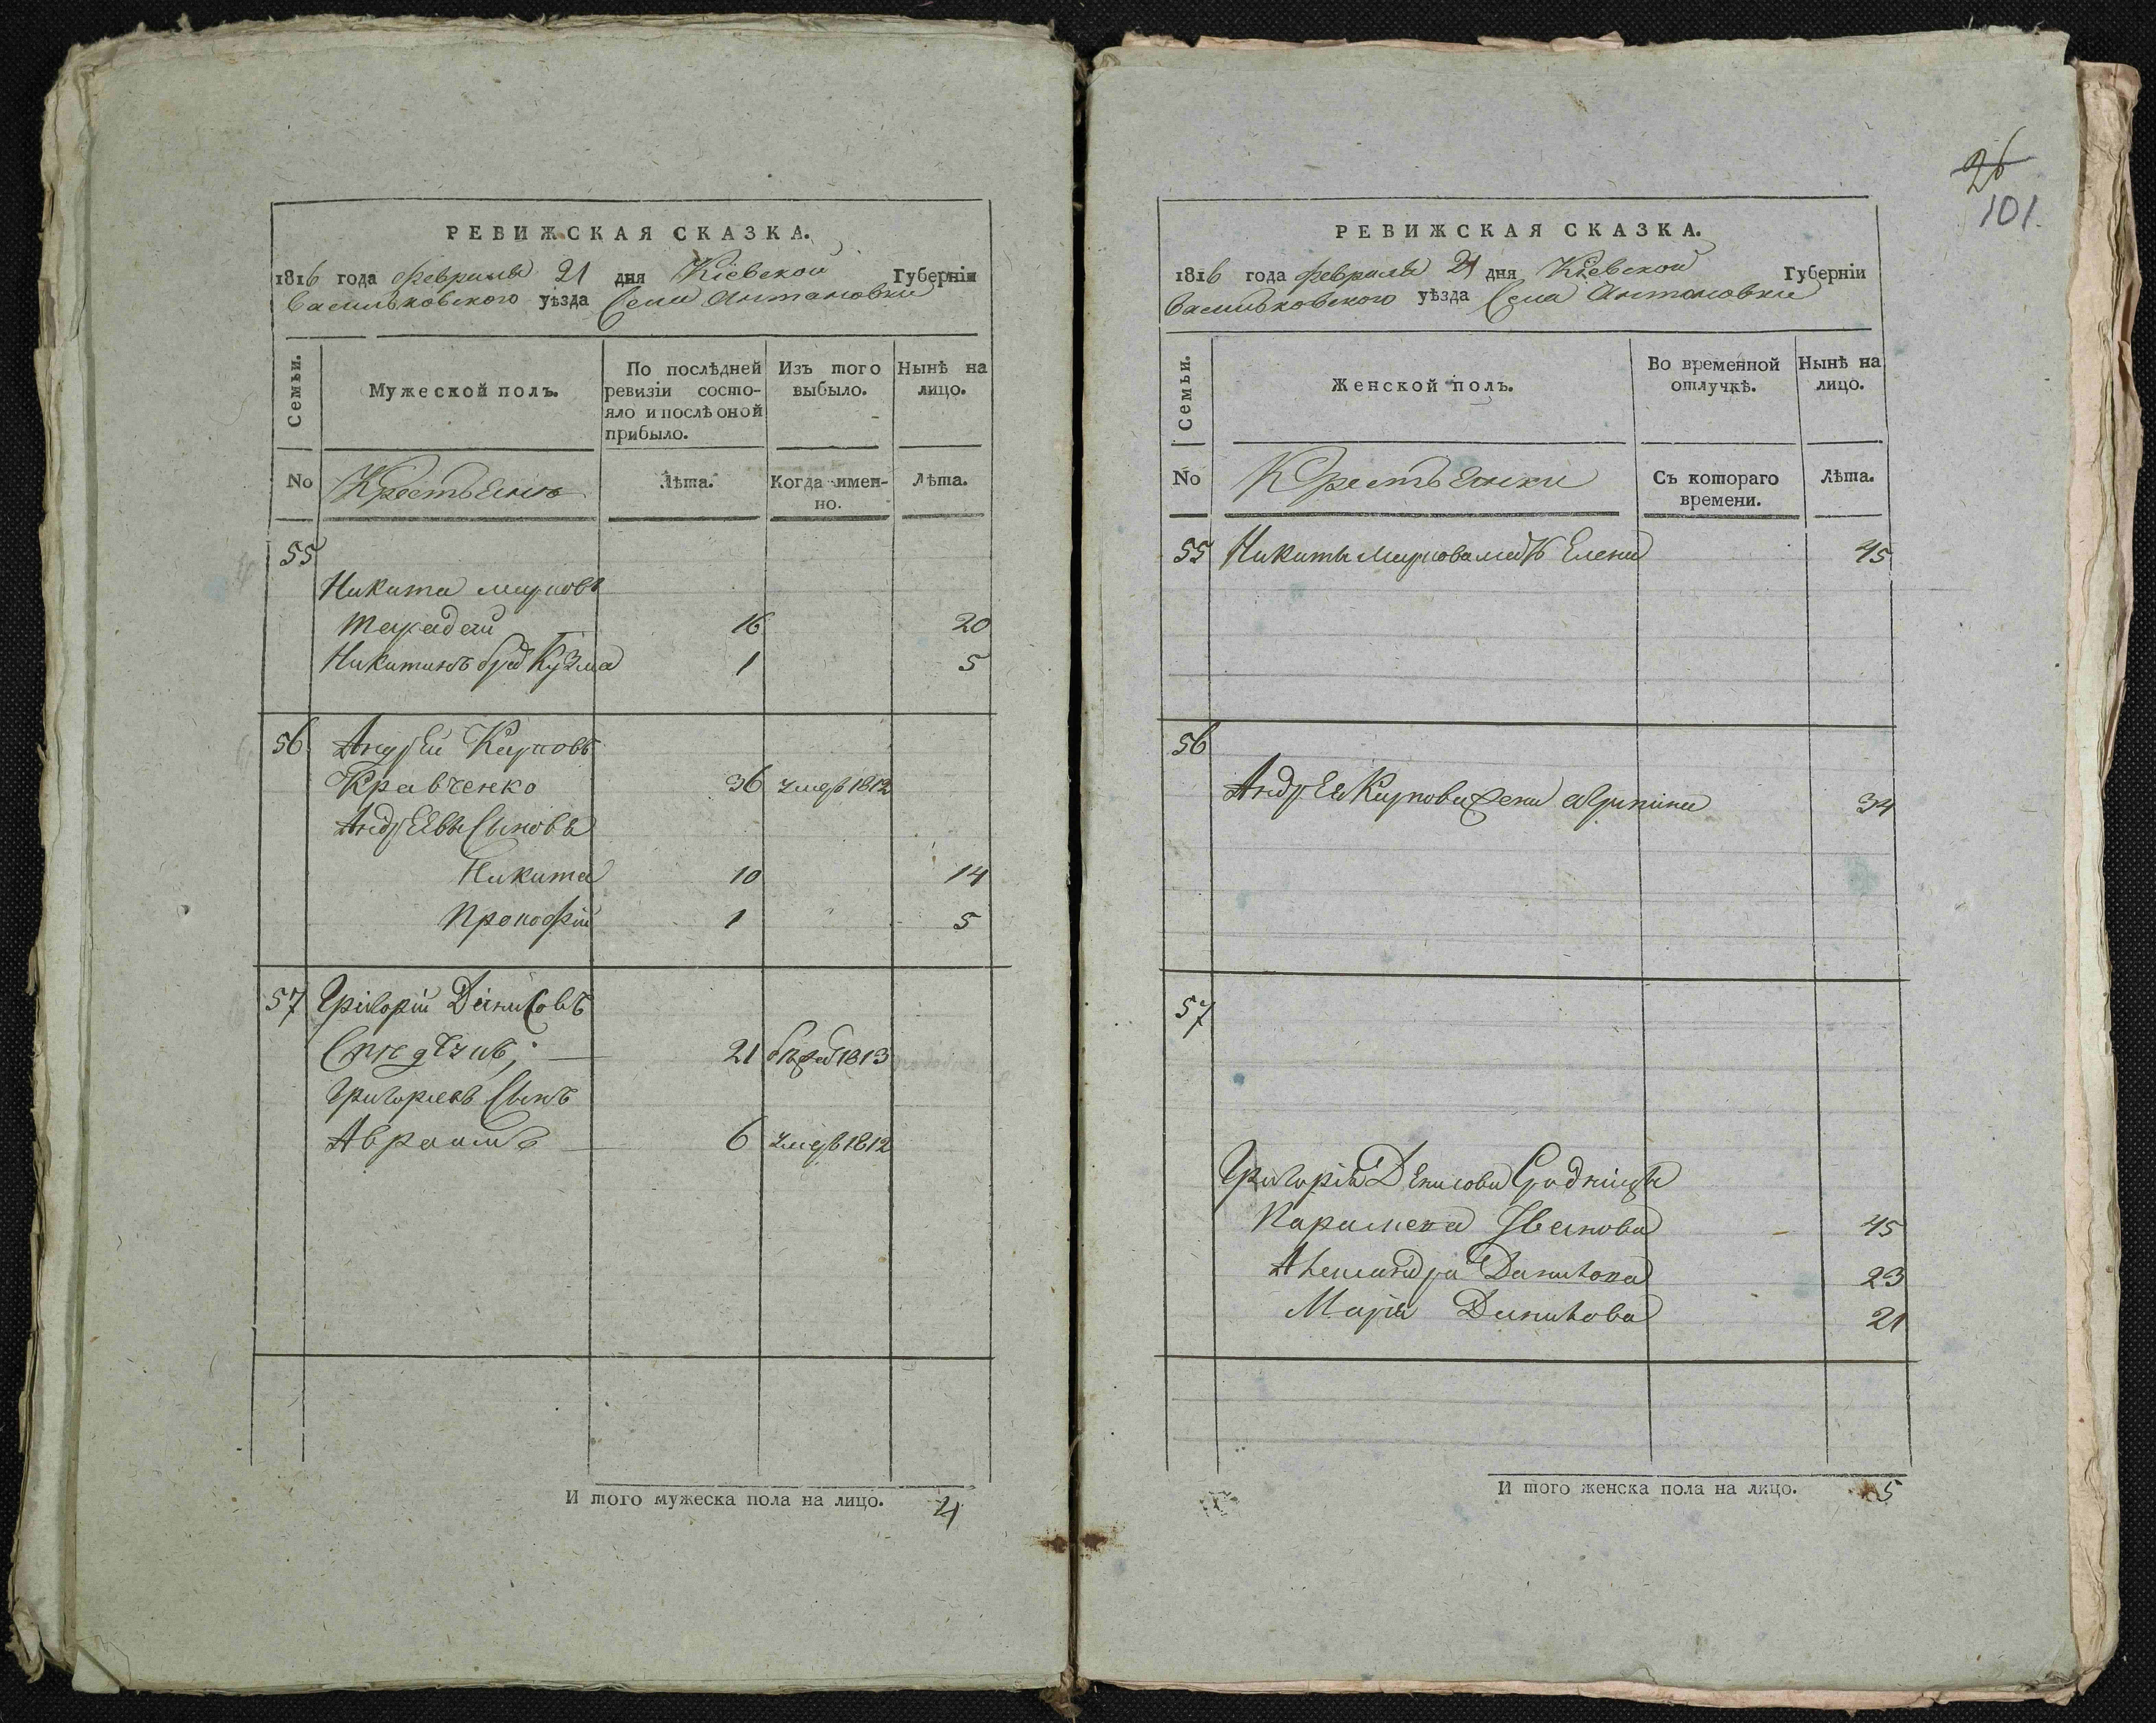 РЕВИЖСКАЯ СКАЗКА.
1816 года февраля 21 дня Кіевской Губерніи
Васильковского уѣзда Села Антоновки
Семьи.
Мужеской полъ.
По послѣдней ревизіи состо-
яло и послѣ оной
прибыло.
Изъ того
выбыло.
Нынѣ на
лицо.
No
Крестьяне
Лѣта.
Когда имен-
но.
Лѣта.
55
Никита
16 20
Никитинъ брат Кузма 1 5
56 Андрей Карповъ
Кравченко 36 умеръ 1812
Андреевы Сыновья
Никита 10 14
Прокофій 1 5
57 Григорій Денисовъ
21 1813
Григорьевъ Сынъ
Авраамъ 6 умеръ 1812
И того мужеска пола на лицо. 4
26
101.
РЕВИЖСКАЯ СКАЗКА.
1816 года февраля 21 дня Кіевской Губерніи
Васильковского уѣзда Села Антоновки
Семьи.
Женской полъ.
Во временной
отлучкѣ.
Нынѣ на
лицо.
No
Крестьянки
Съ котораго
времени.
Лѣта.
55 Никиты Елена 45
56
Андрея Карпова жена 34
57
Григорія Денисова
Иванова 45
Александра 23
Марія 21
И того женска пола на лицо. 5